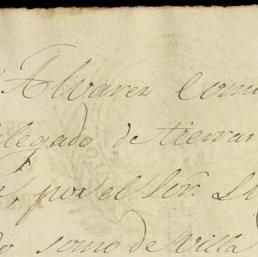 Alvarez Comi
legado de tierras
por el Sor.
como de Villa